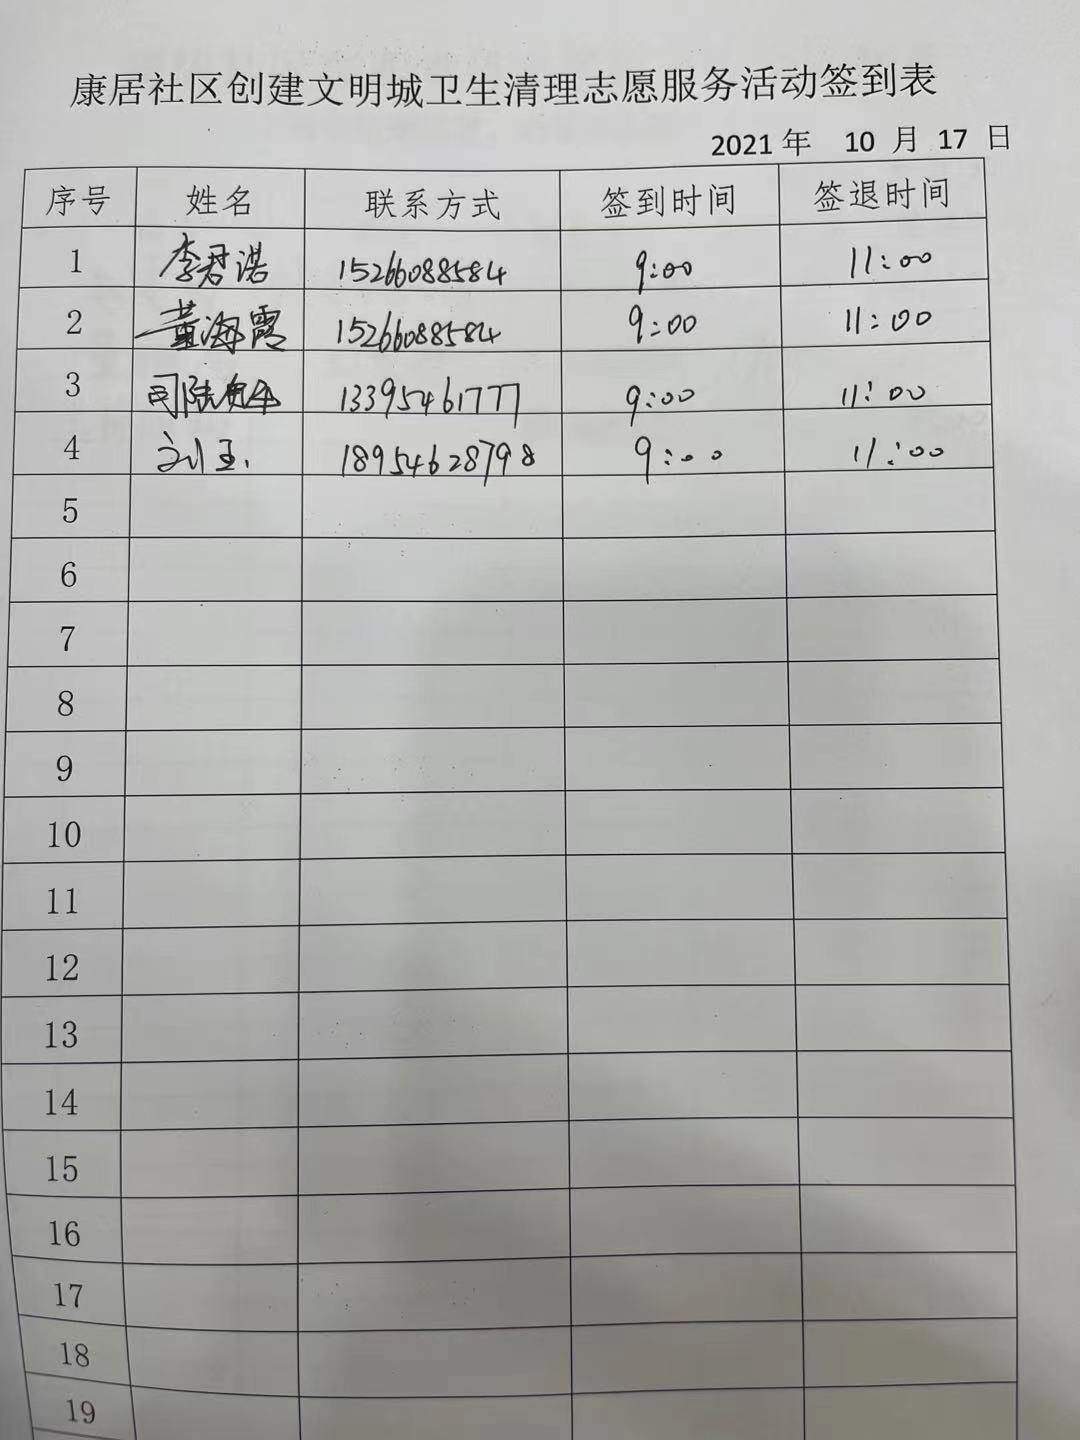 康居社区创建文明城卫生清理志愿服务活动签到表
2021 年 10 月 17 日
序号 姓名 联系方式 签到时间 签退时间
1 李君诺 15266088584 9:00 11:00
2 董海霞 15266088584 9:00 11:00
3 13395461777 9:00 11:00
4 刘玉 18954628798 9:00 11:00
5
6
7
8
9
10
11
12
13
14
15
16
17
18
19